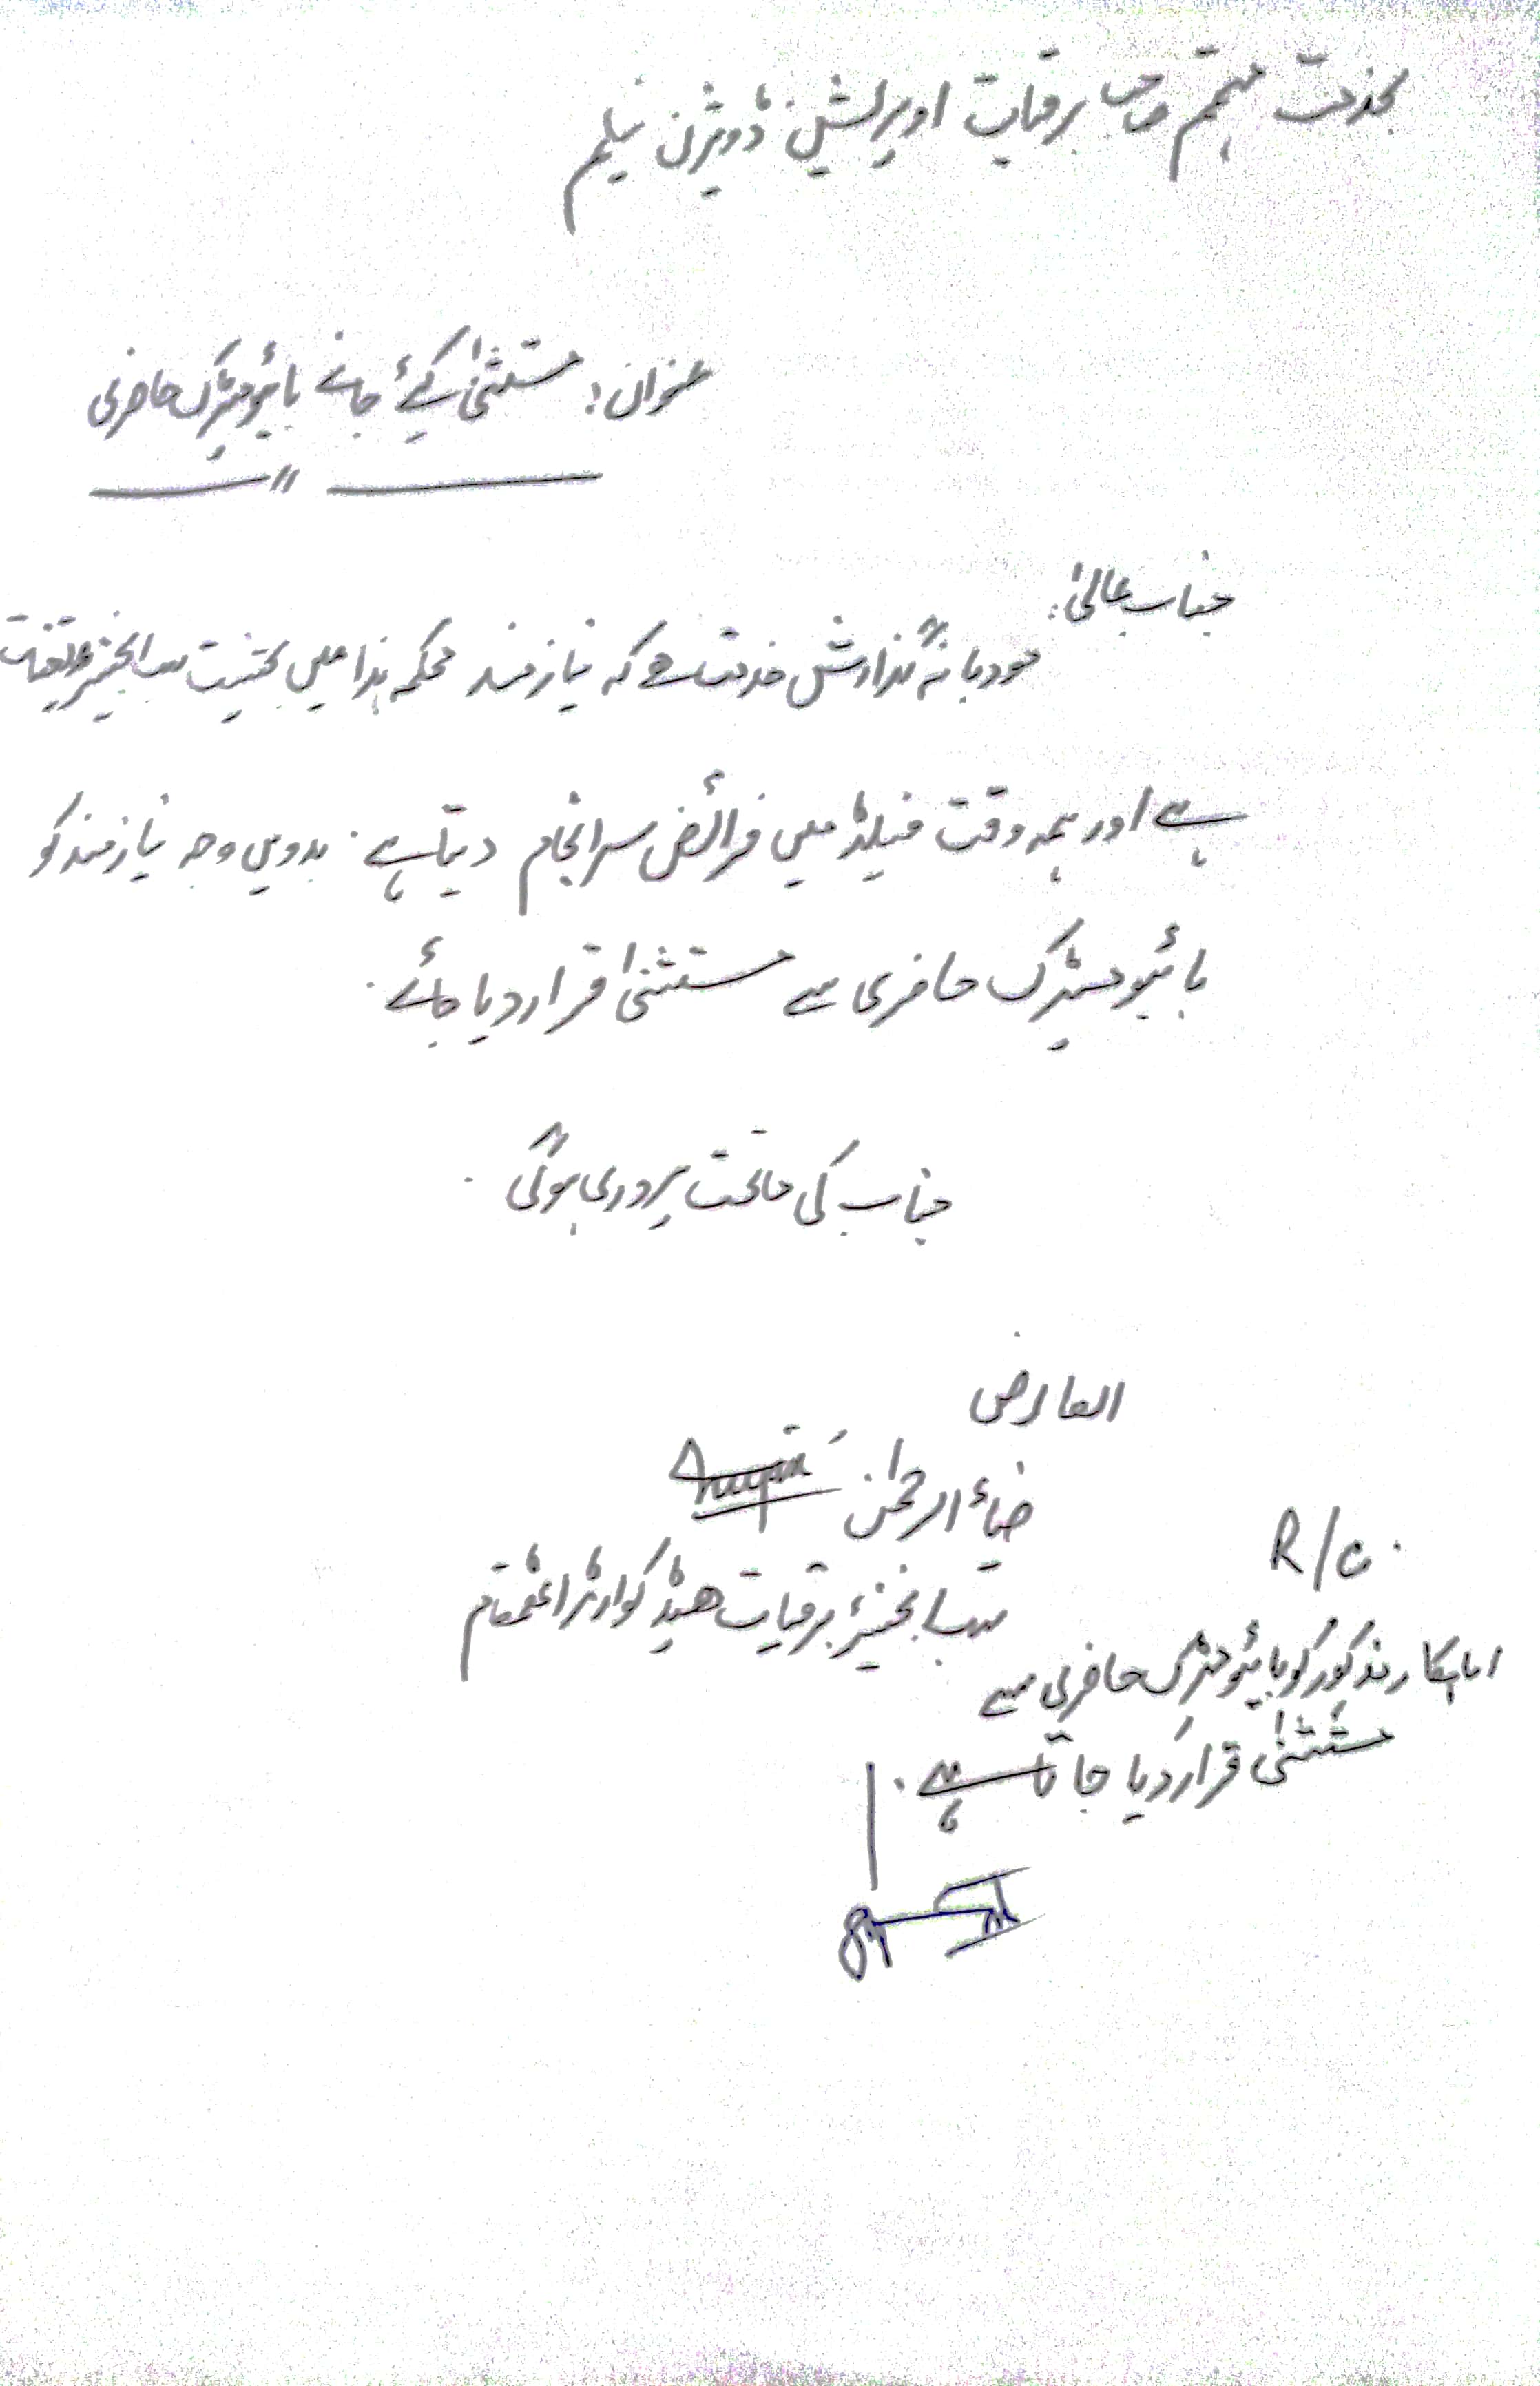 بخدمت مہتمم صاحب برقیات اوپریشن ڈویژن نیلم
عنوان: مستثنیٰ کیئے جانے بائیومیٹرک حاضری
جناب عالیٰ:
مودبانہ گذارش خدمت ہے کہ نیازمند محکمہ ہذا میں بحثیت سب انجینئر تعینات
ہے اور ہمہ وقت فیلڈ میں فرائض سرانجام دیتا ہے۔ بدویں وجہ نیازمند کو
بائیومیٹرک حاضری سے مستثنیٰ قرار دیا جائے۔
جناب کی ماتحت پروری ہوگی۔
العارض
ضیاء الرحمٰن
سب انجینئر برقیات ھیڈ کوارٹر اٹھمقام
R/C.
اہلکار مذکور کو بائیومیٹرک حاضری سے
مستثنیٰ قرار دیا جاتا ہے۔